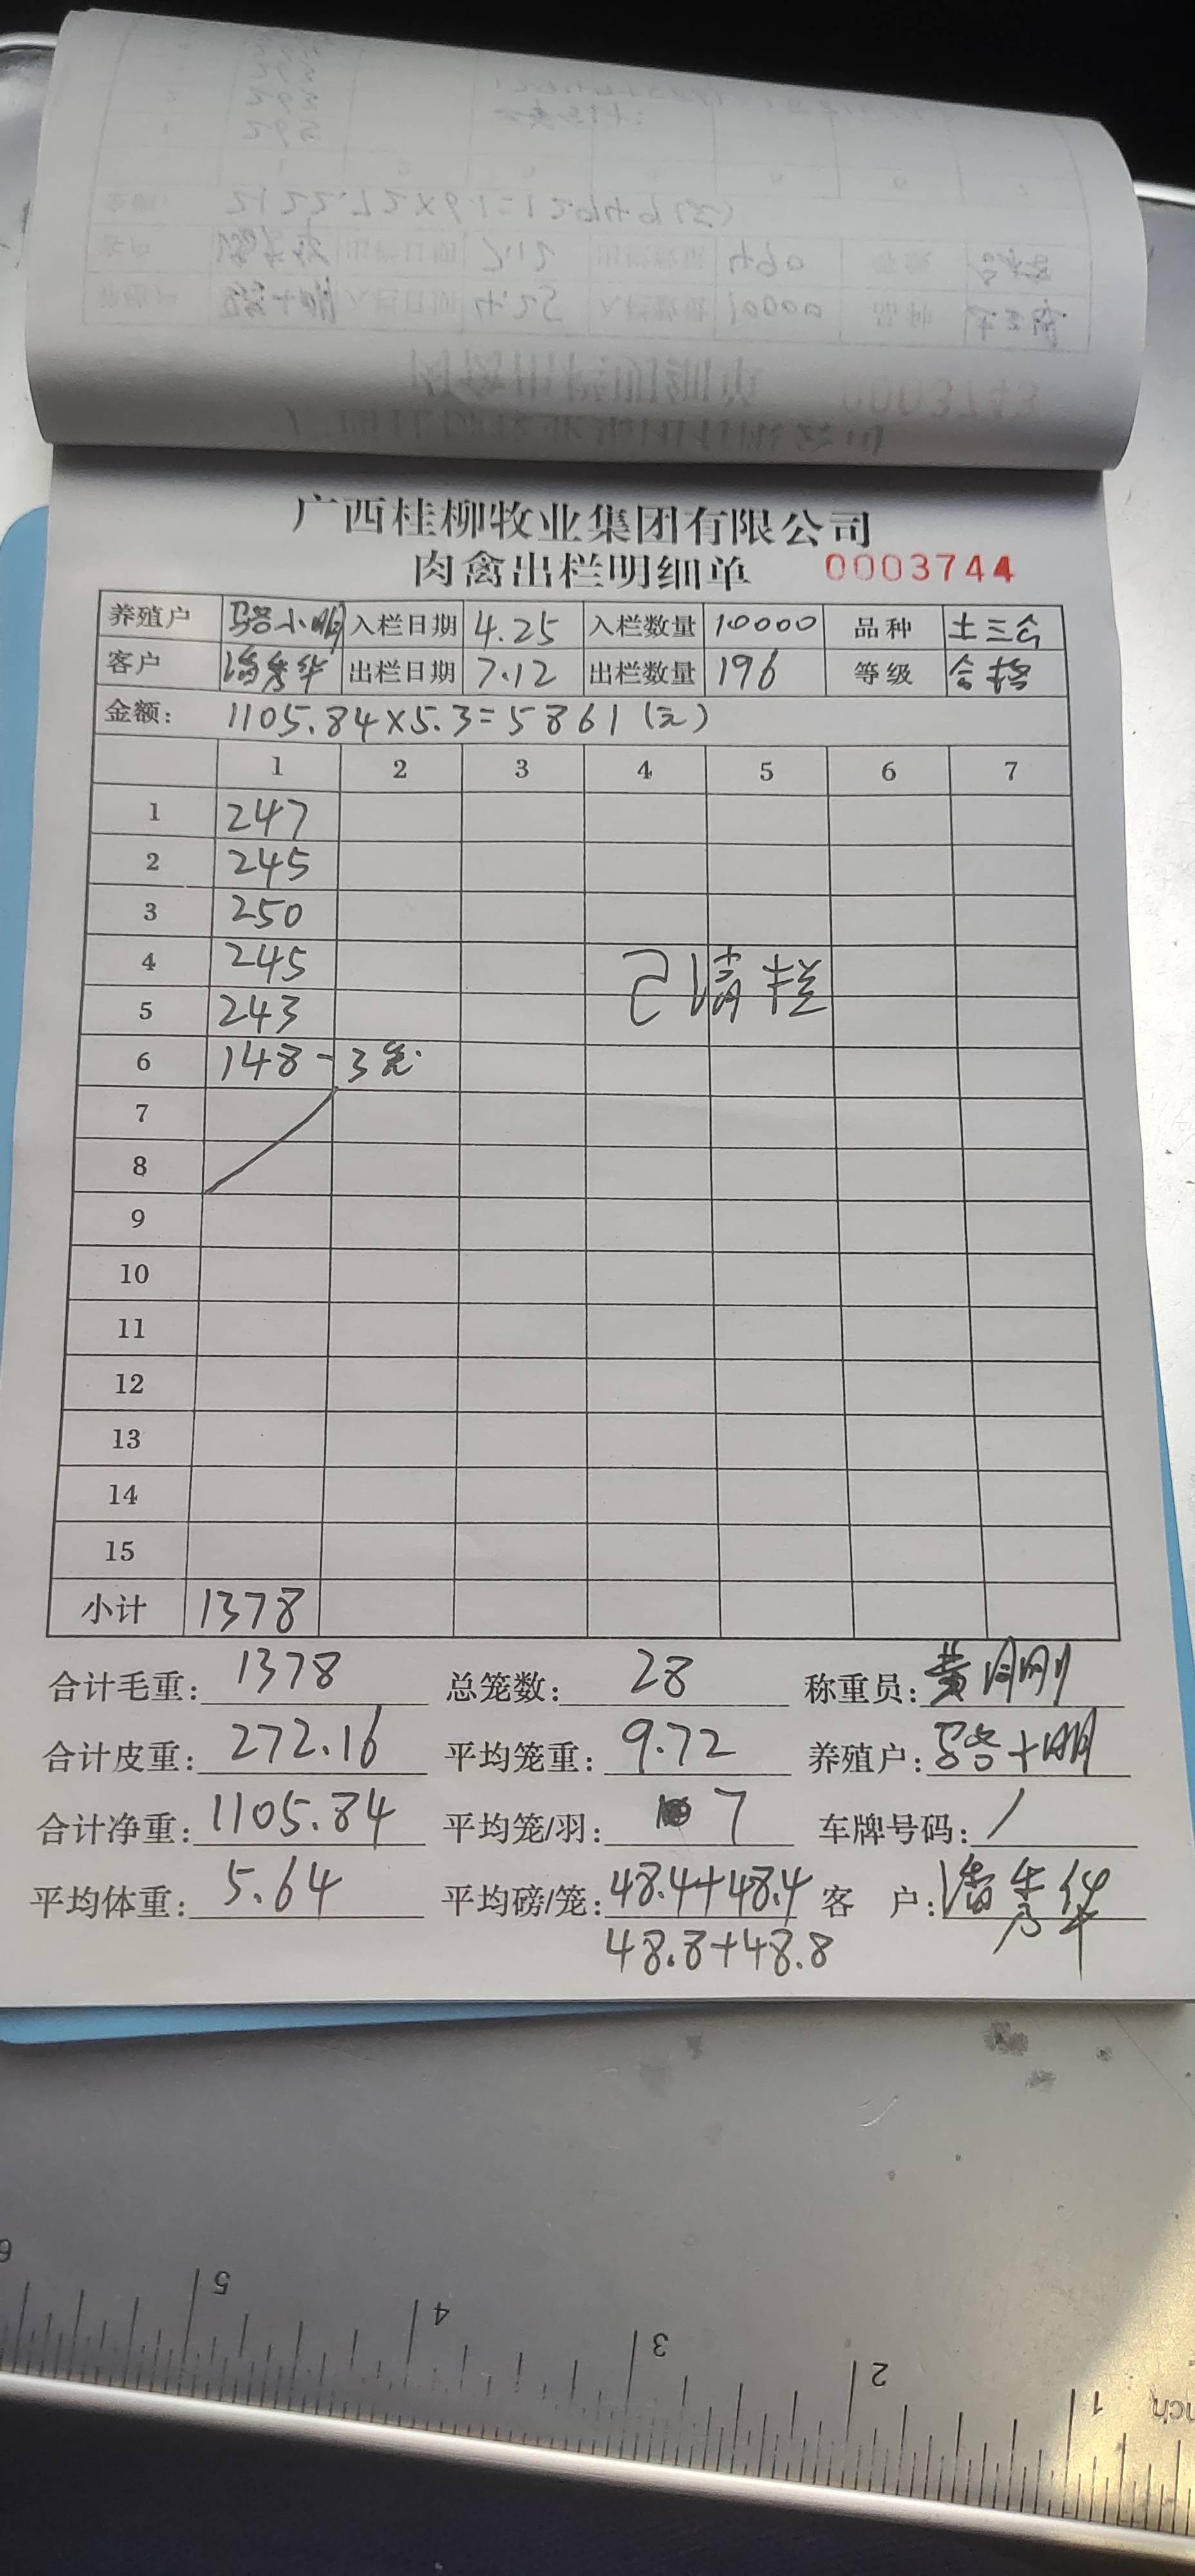 广西桂柳牧业集团有限公司
肉禽出栏明细单 0003744
养殖户 骆小明 入栏日期 4.25 入栏数量 10000 品种 土三合
客户 潘秀华 出栏日期 7.12 出栏数量 196 等级 合格
金额: 1105.84×5.3=5861(元)
1 2 3 4 5 6 7
1 247
2 245
3 250
4 245
已清栏
5 243
6 148-3笼.
7
8
9
10
11
12
13
14
15
小计 1378
合计毛重: 1378 总笼数: 28 称重员: 黄
合计皮重: 272.16 平均笼重: 9.72 养殖户: 骆小明
合计净重: 1105.84 平均笼/羽: 7 车牌号码: /
平均体重: 5.64 平均磅/笼: 48.4+48.4 客 户: 潘秀华
48.8+48.8
6 5 4 3 2 1 inch